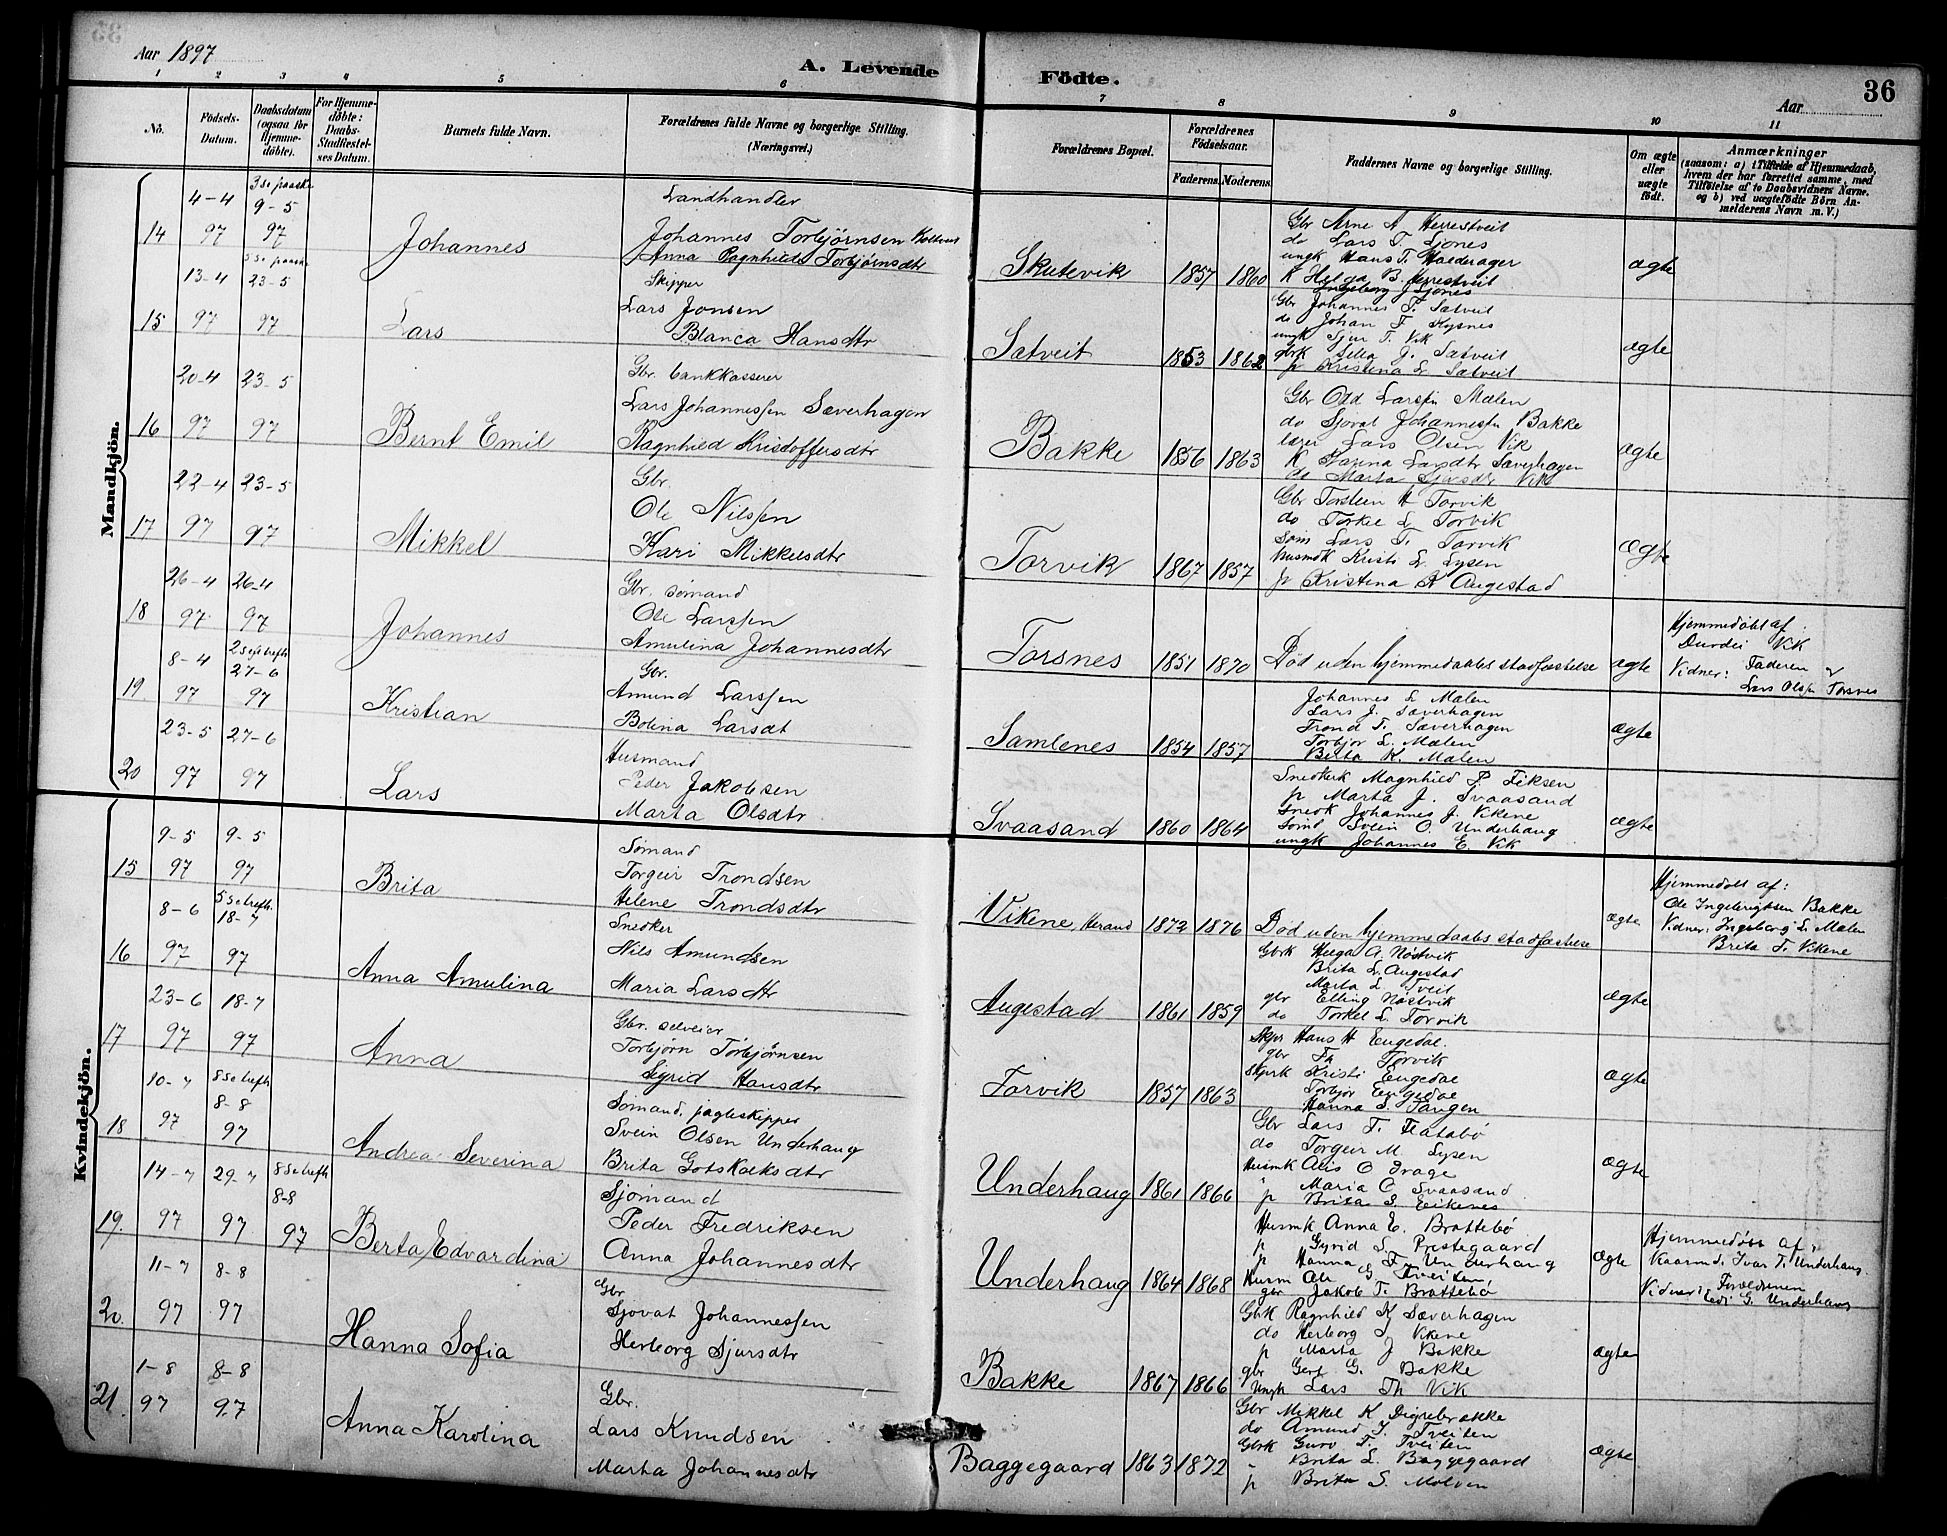 Aar 1897
A. Levende Födte.
Aar
36
1 2 3 4 5 6 7 8 9 10 11
No.
Födsels-Datum.
Daabsdatum (ogsaa for Hjemmedöbte).
For Hjemmedöbte: Daabs-Stadfæstelses Datum.
Barnets fulde Navn.
Forældrenes fulde Navne og borgerlige Stilling. (Næringsvei.)
Forældrenes Bopæl.
Forældrenes Födselsaar.
Faderens. Moderens.
Faddernes Navne og borgerlige Stilling.
Om ægte eller uægte födt.
Anmærkninger
(saasom: a) i Tilfælde af Hjemmedaab, hvem der har forrettet samme, med Tilföielse af to Daabsvidners Navne, og b) ved uægtefödte Börn Anmelderens Navn m. V.)
Mandkjön.
14
4-4 97
3 s e paaske 9-5 97
Johannes
Landhandler
Johannes Torbjørnsen
Anna Ragnhilda Torbjørnsdtr
Skutevik
1857 1860
Gbr Arne A Herrestveit
do Lars T. Ljones
ungk Hans T. Halderager
K Helga B. Herrestveit
Ingeborg J Ljones
ægte
15
13-4 97
5 s e paaske 23-5 97
Lars
Skipper
Lars Jonsen
Blanca Hansdtr
Sætveit
1853 1862
Gbr Johannes T. Sætveit
do Johan F. Kysnes
ungk Sjur T. Vik
gbrk J. Sætveit
p Kristina L. Sætveit
ægte
16
20-4 97
23-5 97
Bernt Emil
Gbr. bankkasserer
Lars Johannessen Sæverhagen
Ragnhild Kristoffersdtr
Bakke
1856 1863
Gbr Odd Larssen Mælen
do Sjovat Johannessen Bakke
lærer Lars Olsen Vik
K Larsdtr Sæverhagen
do Marta Sjursdtr Vik
ægte
17
22-4 97
23-5 97
Mikkel
Gbr.
Ole Nilssen
Kari Mikkelsdtr
Torvik
1867 1857
Gbr Torstein H Torvik
do Torkel L. Torvik
Søm Lars T. Torvik
husmdk Kristi L. Lysen
p Kristina K Augestad
ægte
18
26-4 97
26-4 97
Johannes
Gbr. sømand
Ole Larssen
Amulina Johannesdtr
Torsnes
1851 1870
Død uden hjemmedaabs stadfæstelse
ægte
Hjemmedøbt af
Durdei Vik
Vidner: Faderen &
Lars Olsen Torsnes
19
8-4 97
2 s e trefh 27-6 97
Kristian
Gbr.
Amund Larssen
Bolina Larsdt
Samlenes
1854 1857
Johannes L. Mælen
Lars J. Sæverhagen
Trond T. Sæverhagen
Torbjor L. Mælen
Brita K. Mælen
ægte
20
23-5 97
27-6 97
Lars
Husmand
Peder Jakobsen
Marta Olsdtr
Svaasand
1860 1864
Snedkerk Magnhild P. Eiksen
p Marta J. Svaasand
Snedk Johannes J. Vikene
Sømd Svein O. Underhaug
ungk Johannes E. Vik
ægte
Kvindekjön.
15
9-5 97
9-5 97
Brita
Sømand
Torgeir Trondsen
Helene Trondsdtr
Vikene, Herand
1872 1876
Død uden hjemmedaabs stadfæstelse
ægte
Hjemmedøbt af:
Ole Ingebrigtsen Bakke
Vidner: Ingeborg L. Mælen
Brita T. Vikene
16
8-6 97
5 s e trefh. 18-7 97
Anna Amulina
Snedker
Nils Amundsen
Maria Larsdtr
Augestad
1861 1859
Gbrk Helga A. Nøstvik
Brita L. Augestad
Marta L. Tveit
gbr Elling Nøstvik
do Torkel L. Torvik
ægte
17
23-6 97
18-7 97
Anna
Gbr. selveier
Torbjørn Torbjørnsen
Sigrid Hansdtr
Torvik
1857 1863
Skpr Hans H Engedal.
gbr Th Torvik
Skprk Kristi Engedal
Torbjor Engedal
Hanna S. Tangen
ægte
18
10-7 97
8 s e trefh 8-8 97
Andrea Severina
Sømand, jagteskipper
Svein Olsen Underhaug
Brita Gotskalksdtr
Underhaug
1861 1866
Gbr Lars T. Flatabø
do Torgeir M Lysen
Husmk Alis O Drage
" Maria O Svaasand
p Brita S. Eikenes
ægte
19.
14-7 97
29-7 97
8 s e trefh 8-8 97
Berta Edvardina
Sjømand
Peder Fredriksen
Anna Johannesdtr
Underhaug
1864 1868
Husmk Anna E. Brattebø
p Gyrid S. Prestegaard
p Hanna F. Underhaug
Husm Ole G Tveiten
gbr Jakob T. Brattebø
ægte
Hjemmedøbt af
Kaarmd. Ivar T. Underhaug
Vidner: Forældrene
Eedi G. Underhaug
20.
11-7 97
8-8 97
Hanna Sofia
Gbr
Sjovat Johannessen
Herborg Sjursdtr
Bakke
1867 1866
Gbk Ragnhild K Sæverhagen
do Herborg S. Vikene
p Marta J Bakke
gbr Gert G. Bakke
Ungk Lars Th Vik
ægte
21.
1-8 97
8-8 97
Anna Karolina
Gbr.
Lars Knudsen
Marta Johannesdtr
Baggegaard
1863 1872
Gbr Mikkel K Digrebrække
do Amund T. Tveiten
Gbrk Guro T. Tveiten
" Brita L. Baggegaard
p Brita S. Molven
ægte